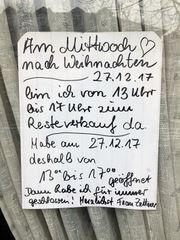 Am Mittwoch ♡
nach Weihnachten
27.12.17
bin ich von 13 Uhr
bis 17 Uhr zum
Resteverkauf da.
Habe am 27.12.17
deshalb von
13⁰⁰ bis 17⁰⁰ geöffnet
Dann habe ich für immer
geschlossen! Herzlichst Frau